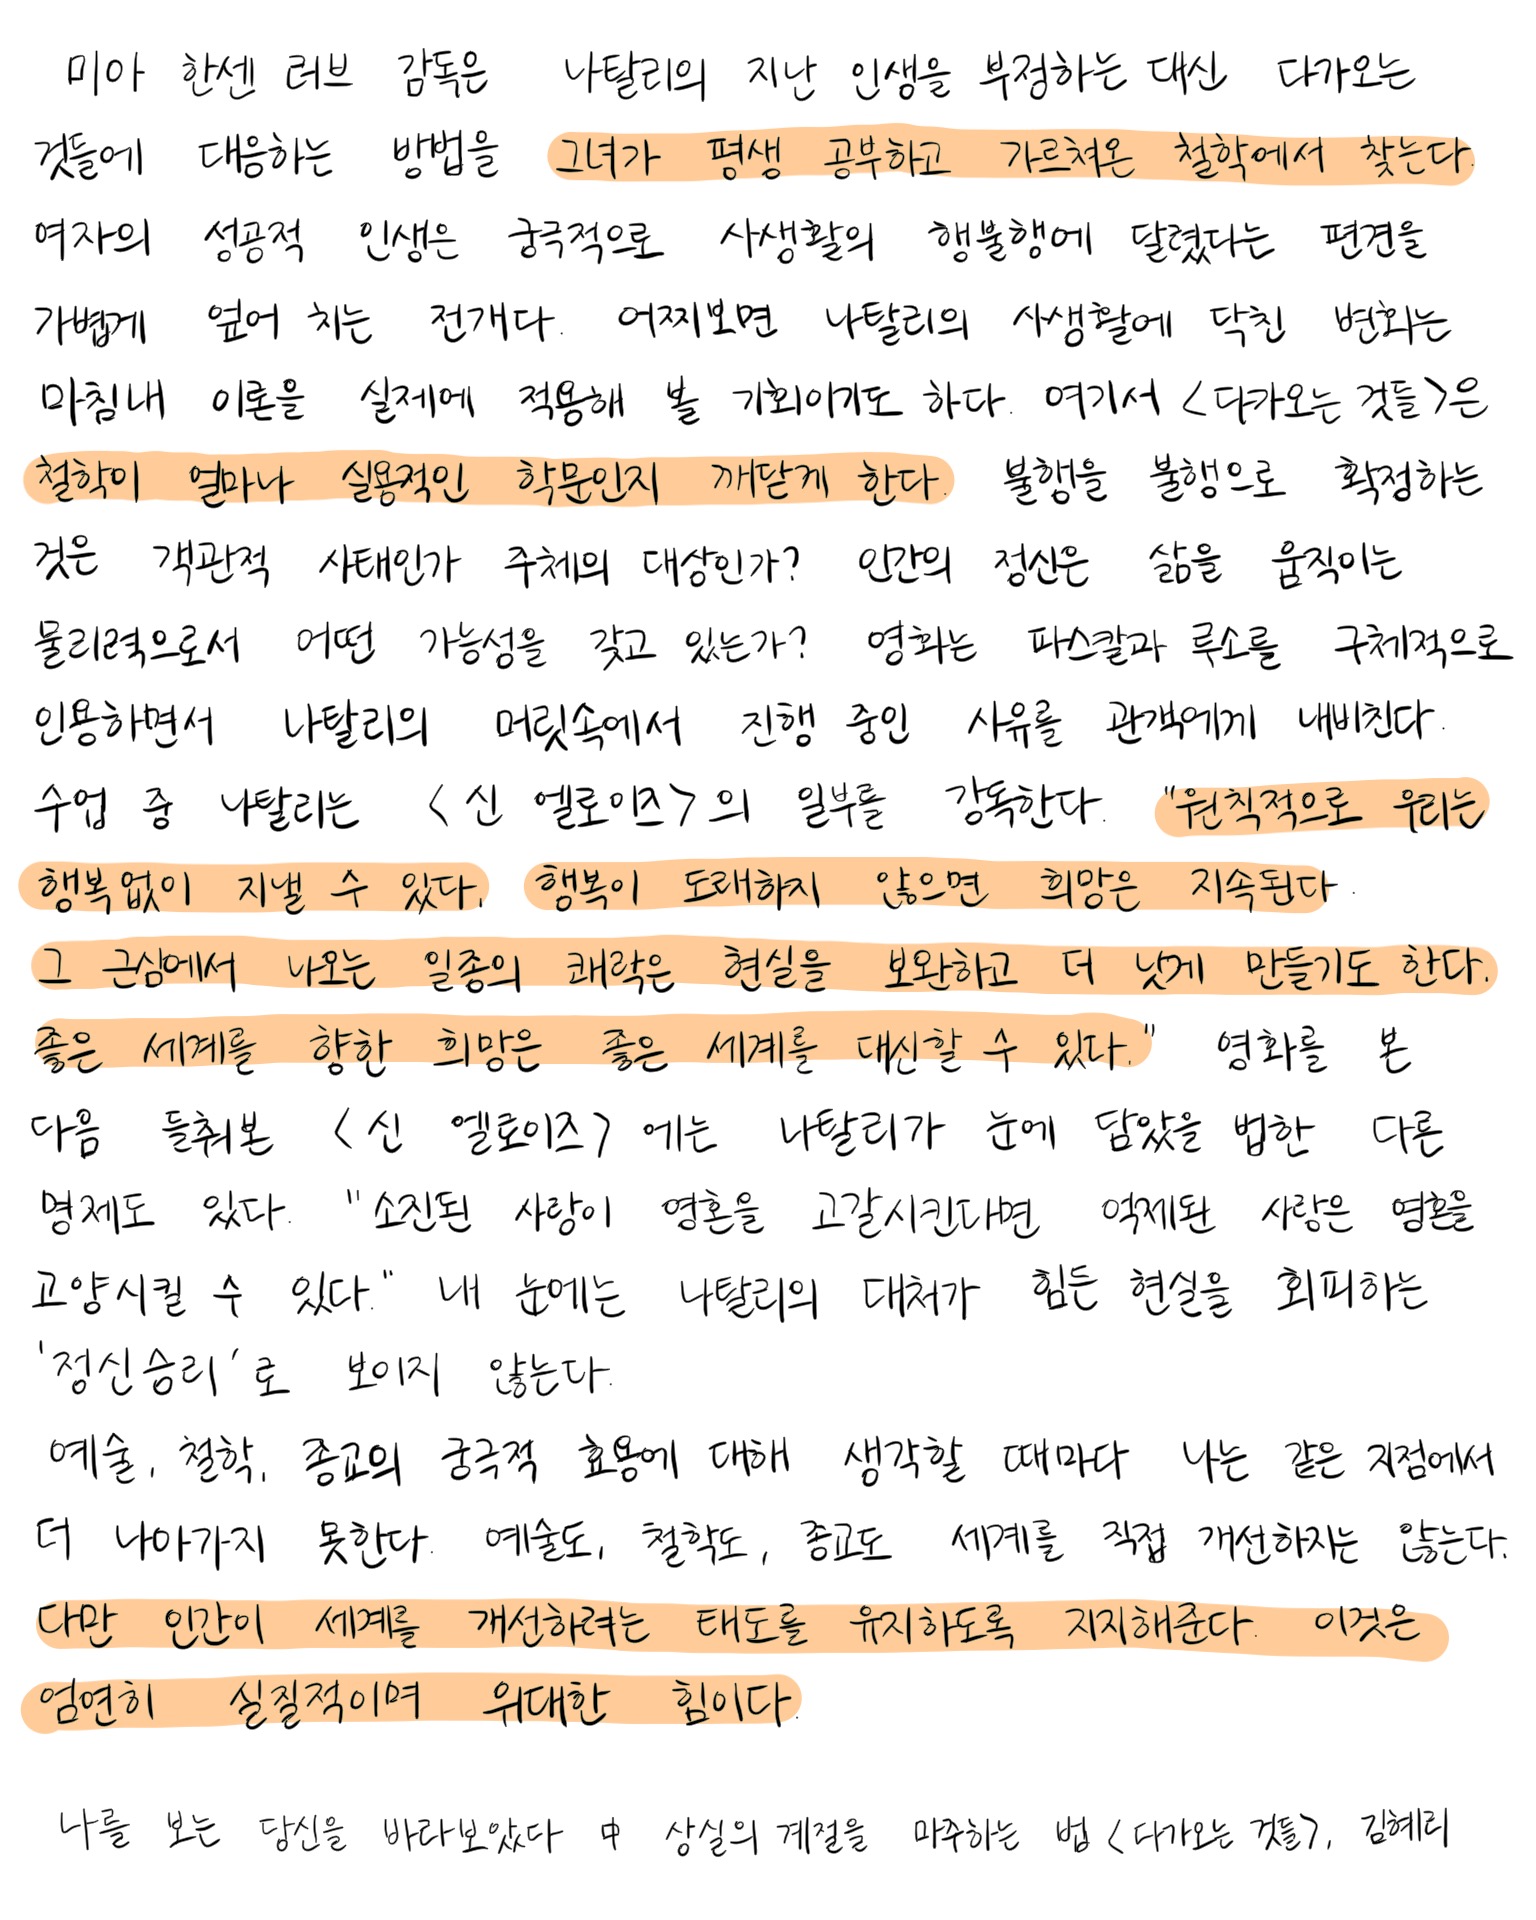 미아 한센 러브 감독은 나탈리의 지난 인생을 부정하는 대신 다가오는
것들에 대응하는 방법을 그녀가 평생 공부하고 가르쳐온 철학에서 찾는다.
여자의 성공적 인생은 궁극적으로 사생활의 행불행에 달렸다는 편견을
가볍게 엎어 치는 전개다. 어찌보면 나탈리의 사생활에 닥친 변화는
마침내 이론을 실제에 적용해 볼 기회이기도 하다. 여기서 <다가오는 것들>은
철학이 얼마나 실용적인 학문인지 깨닫게 한다. 불행을 불행으로 확정하는
것은 객관적 사태인가 주체의 대상인가? 인간의 정신은 삶을 움직이는
물리력으로서 어떤 가능성을 갖고 있는가? 영화는 파스칼과 루소를 구체적으로
인용하면서 나탈리의 머릿속에서 진행 중인 사유를 관객에게 내비친다.
수업 중 나탈리는 <신 엘로이즈>의 일부를 강독한다. "원칙적으로 우리는
행복없이 지낼 수 있다. 행복이 도래하지 않으면 희망은 지속된다.
그 근심에서 나오는 일종의 쾌락은 현실을 보완하고 더 낫게 만들기도 한다.
좋은 세계를 향한 희망은 좋은 세계를 대신할 수 있다." 영화를 본
다음 들춰본 <신 엘로이즈>에는 나탈리가 눈에 담았을 법한 다른
명제도 있다. "소진된 사랑이 영혼을 고갈시킨다면 억제된 사랑은 영혼을
고양시킬 수 있다." 내 눈에는 나탈리의 대처가 힘든 현실을 회피하는
'정신승리'로 보이지 않는다.
예술, 철학, 종교의 궁극적 효용에 대해 생각할 때마다 나는 같은 지점에서
더 나아가지 못한다. 예술도, 철학도, 종교도 세계를 직접 개선하지는 않는다.
다만 인간이 세계를 개선하려는 태도를 유지하도록 지지해준다. 이것은
엄연히 실질적이며 위대한 힘이다.
나를 보는 당신을 바라보았다 中 상실의 계절을 마주하는 법 <다가오는 것들>, 김혜리